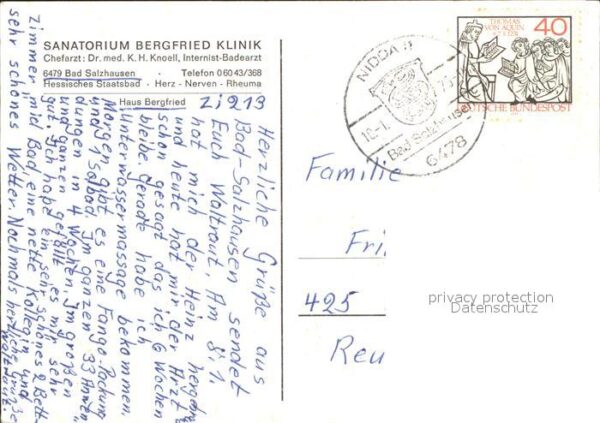 SANATORIUM BERGFRIED KLINIK
Chefarzt: Dr. med. K. H. Knoell, Internist-Badearzt
6479 Bad Salzhausen · Telefon 0 60 43/368
Hessisches Staatsbad · Herz - Nerven - Rheuma
Haus Bergfried
Zi 213
Herzliche Grüße aus
Bad-Salzhausen sendet
Euch Waltraut. Am 8.1.
hat mich der Heinz
und heute hat mir der Arzt
schon gesagt das ich 6 Wochen
bleibe. Gerade habe ich
Unterwassermassage bekommen.
Morgen gibt es eine Fango-Packung
und 1 Solbad. Im ganzen 33
dungen in 4 Wochen. Im großen
und ganzen gefällt es mir sehr
gut. Ich habe ein sehr schönes 2 Bett-
zimmer mid Bad eine nette Kollegin und
sehr schönes Wetter. Nochmals herzliche Grüße
Waltraut.
THOMAS
VON AQUIN
40
DEUTSCHE BUNDESPOST
NIDDA
Bad Salzhausen
6478
Familie
Fri
425
Reu
privacy protection
Datenschutz